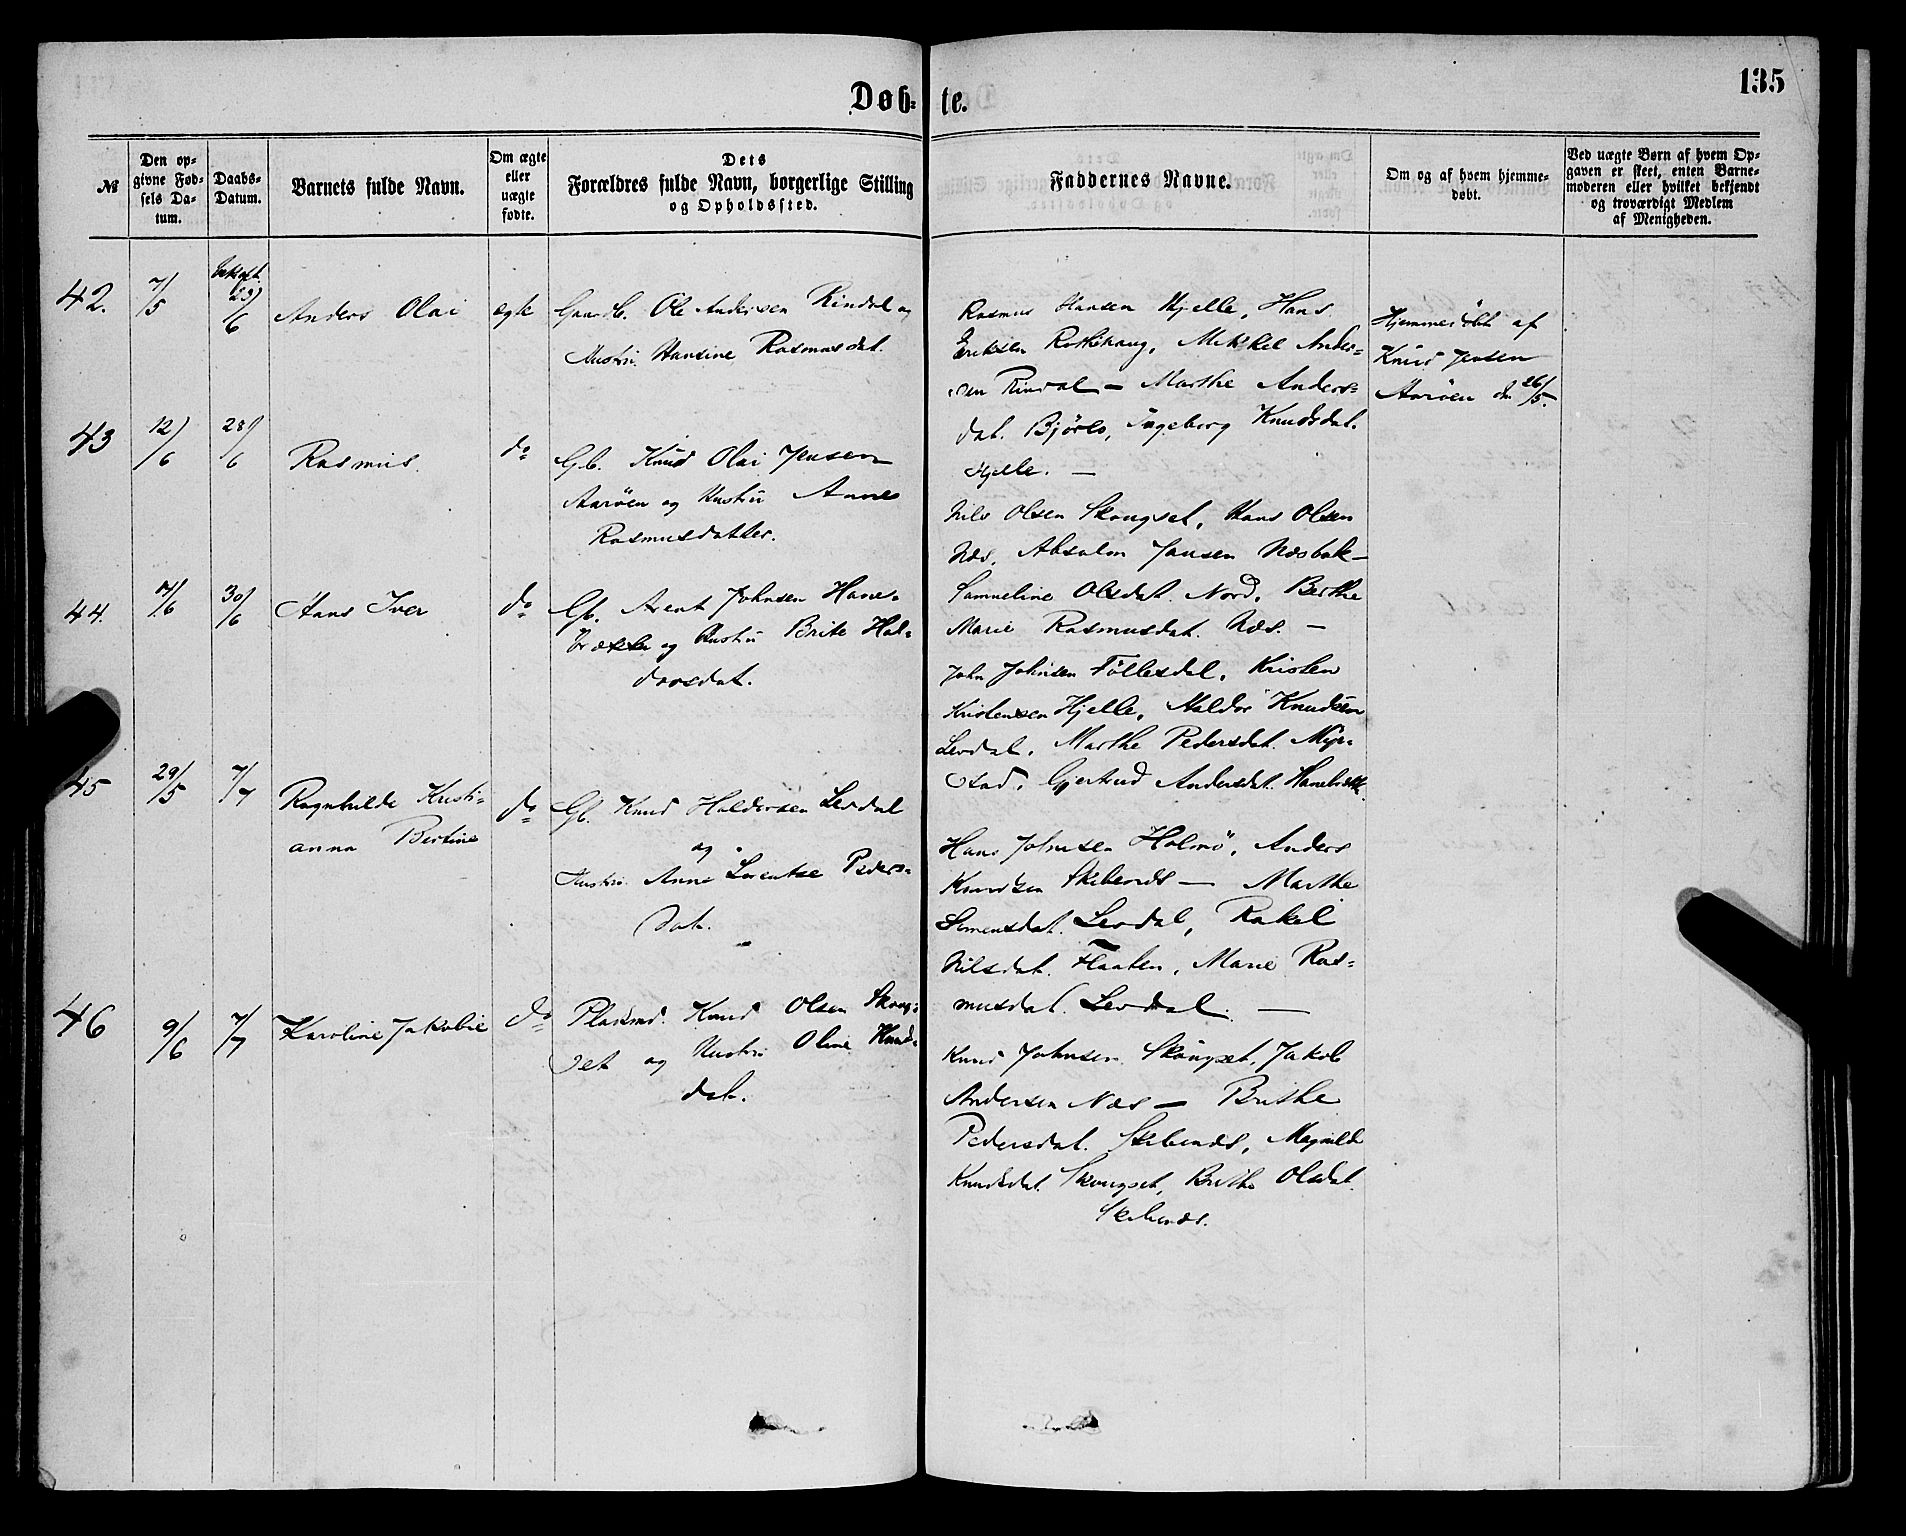 135
Døb- te.
№
Den op-
givne Fød-
sels Da-
tum.
Daabs-
Datum.
Barnets fulde Navn.
Om ægte
eller
uægte
fødte.
Dets
Forældres fulde Navn, borgerlige Stilling
og Opholdssted.
Faddernes Navne.
Om og af hvem hjemme-
døbt.
Ved uægte Børn af hvem Op-
gaven er skeet, enten Barne-
moderen eller hvilket bekjendt
og troværdigt Medlem
af Menigheden.
42. 7/5 23/6 Anders Olai ægte Gaardb. Ole Andersen Rindal og
Hustru Hansine Rasmusdat.
Rasmus Hansen Hjelle, Hans
Eriksen Rothhaug, Mikkel Ander-
sen Rindal — Marthe Anders-
dat. Bjørlo, Ingeborg Knudsdat.
Hjelle. —
Hjemmedöbt af
Knud Jensen
Aaröen d. 26/5.
43 12/6 23/6 Rasmus. do Gb. Knud Olai Jensen
Aaröen og Hustru Anne
Rasmusdatter.
Nils Olsen Skougset, Hans Olsen
Næs, Absalon Jansen Næsbak —
Samueline Olsdat. Nord, Berthe
Marie Rasmusdat. Næs. —
44. 7/6 30/6 Hans Iver do Gb. Arent Johnsen Hane-
brække og Hustru Brite Hal-
dorsdat.
John Johnsen Föllesdal, Kristen
Kristensen Hjelle, Haldor Knudsen
Levdal, Marthe Pedersdat. Myr-
stad, Gjertrud Andersdat. Hanebrække.
45 29/5 7/7 Ragnhilde Kristi-
anna Bertine do Gb. Knud Haldorsen Levdal
og
Hustru Anne Lorentze Peders-
dat.
Hans Johnsen Holmö, Anders
Knudsen Skibenes — Marthe
Simensdat. Levdal, Rakel
Nilsdat. Flaaten, Marie Ras-
musdat. Levdal. —
46 9/6 7/7 Karoline Jakobie do Pladsmd. Knud Olsen Skoug-
set og Hustru Oline Knuds-
dat.
Knud Johnsen Skougset, Jakob
Andersen Næs — Brithe
Pedersdat. Skibenes, Magnilde
Knudsdat. Skougset, Brithe Olsdat.
Skibenes.